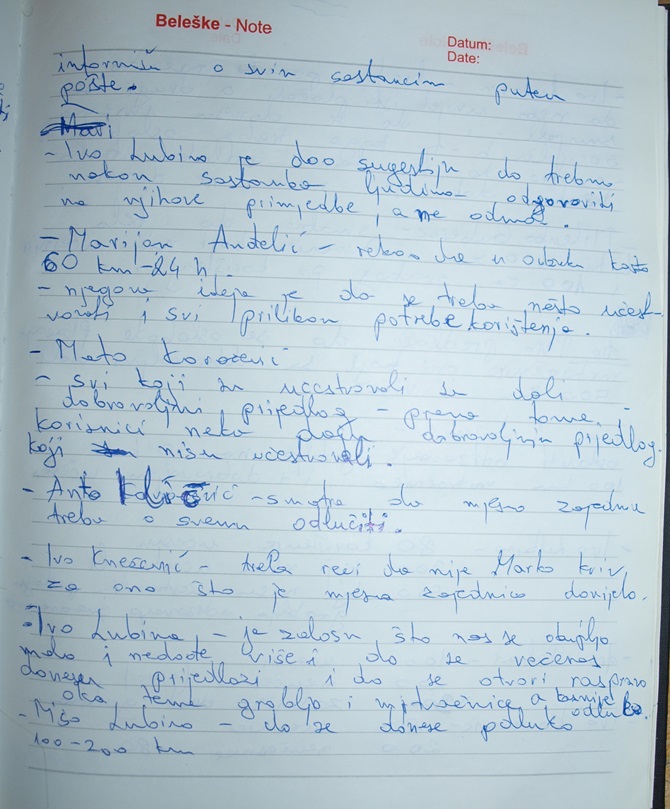 Beleške - Note
Datum:
Date:
informiše o svim sastancim putem
pošte.
Mari
- Ivo Lubina je dao sugestiju da trebmo
nakon sastanka ljudima odgovoriti
na njihove primjedbe, a ne odmah.
- Marijan Anđelić - rekao da u
60 km - 24 h.
- njegova ideja je da se treba nešto učest-
vovati i svi prilikom potrebe korištenja.
- Mato
- svi koji su učestvovali su dali
dobrovoljni prijedlog - prema tome,
korisnici neka daju dobrovoljni prijedlog.
koji nisu učestvovali.
- Anto - smatra da mjesna zajednica
treba o svemu odlučiti.
- Ivo Knezević - treba reći da nije Marko kriv
za ono što je mjesna zajednica donijela.
- Ivo Lubina - je žalosn što nas se okuplja
malo i nedođe više i da se večeras
donesen prijedlozi i da se otvori rasprava
oko teme groblja i mrtvačnice, a kasnije odluka.
- Mišo Lubina - da se donese odluka
100-200 km